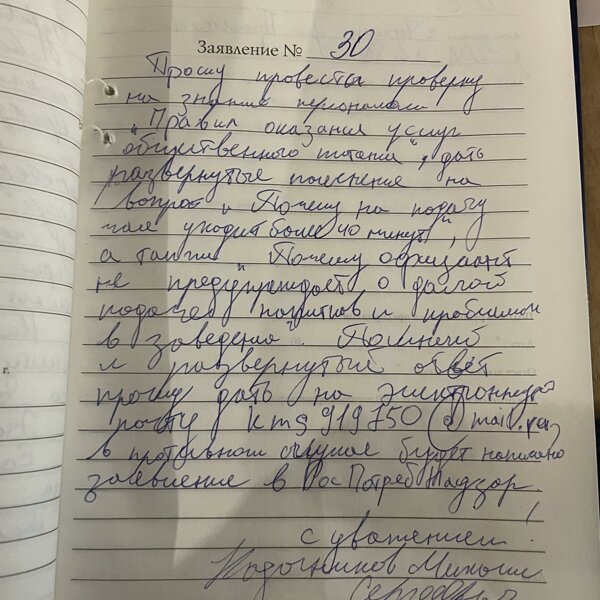 Заявление № 30
Прошу провести проверку
на знание персоналом
"Правил оказания услуг
общественного питания", дать
развернутые пояснения на
вопрос "Почему на подачу
чая уходит более 40 минут",
а также "Почему официант
не предупреждает о долгой
подаче напитков и проблемах
в заведении". Полный
и развернутый ответ
прошу дать на электронную
почту kmg919750@mail.ru,
в противном случае будет написано
заявление в РосПотребНадзор!
С уважением
Михаил